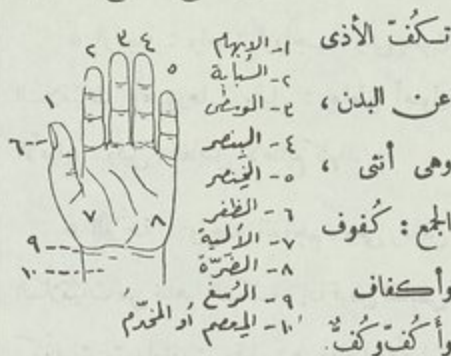 تكُفّ الأذى
عن البدن ،
وهى أنثى ،
الجمع : كُفوف
وأكفاف
وأَكُفّ وكُفٌّ .
١- الإبهام
٢- السبابة
٣- الوسطى
٤- البِنصر
٥- الخِنصر
٦- الظفر
٧- الألية
٨- الضَرّة
٩- الرُسغ
١٠- المِعصم أو المخدّمُ
١
٢
٣
٤
٥
٦
٧
٨
٩
١٠